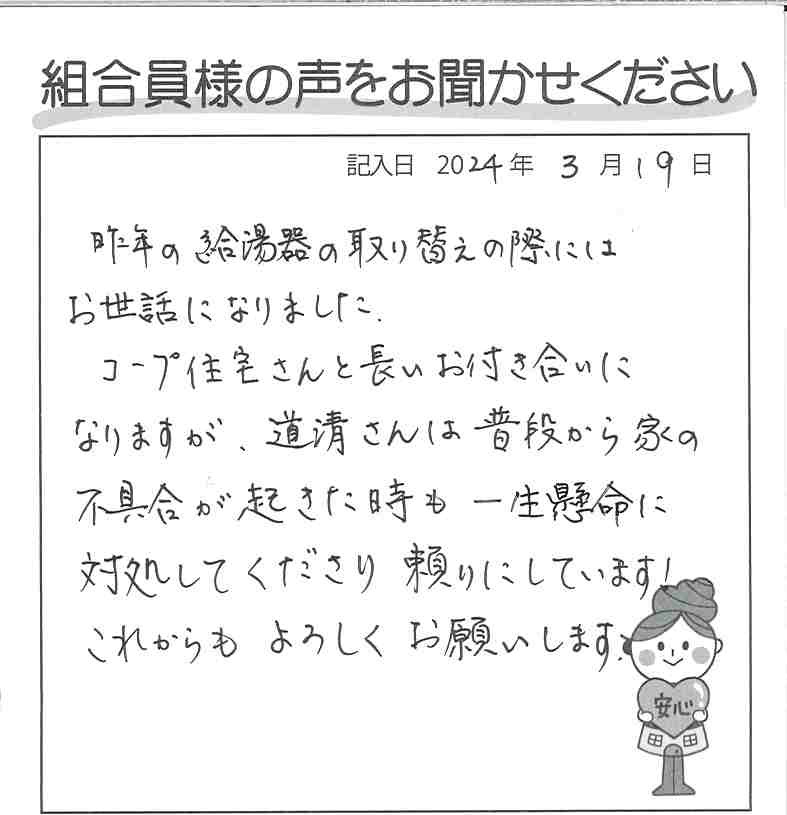 組合員様の声をお聞かせください
記入日 2024年 3月19日
昨年の給湯器の取り替えの際には
お世話になりました.
コープ住宅さんと長いお付き合いに
なりますが、道清さんは普段から家の
不具合が起きた時も一生懸命に
対処してくださり 頼りにしています!
これからも よろしく お願いします.
安心